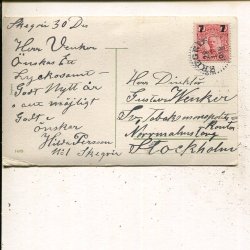 Skegrie 30 Dec
Herr Venker
Önskas Ett
Lyckosamt
Godt Nytt år
o allt möjligt
Godt
önskar
Hilda Person
No 1 Skegrie
7
7
Herr Direktör
Gustav Wenker
Sv. Tobaksmonopolets
Kontor
Norrmalmstorg
Stockholm